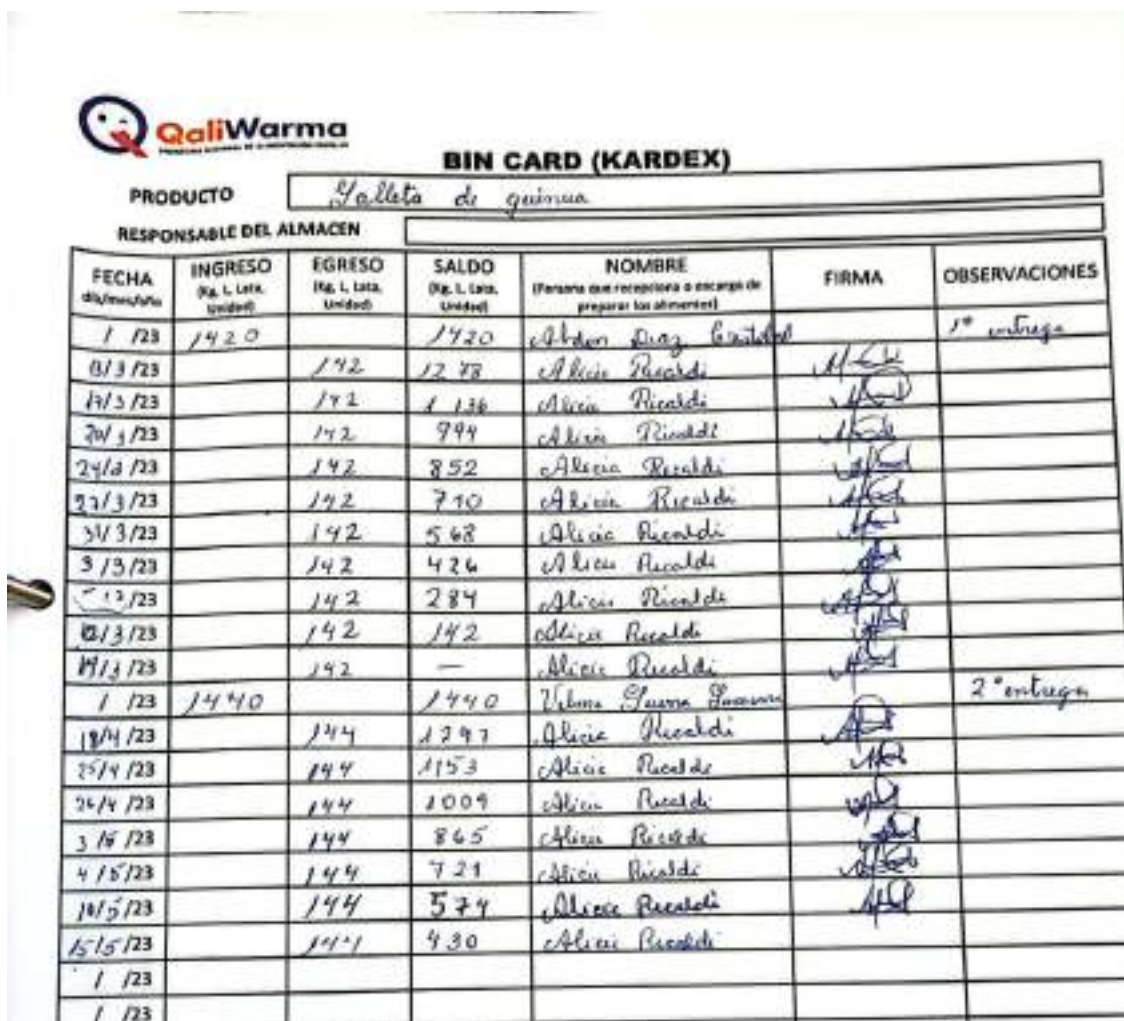 QaliWarma
BIN CARD (KARDEX)
PRODUCTO Galleta de quinua
RESPONSABLE DEL ALMACEN
FECHA día/mes/año INGRESO (Kg, L, Lata, Unidad) EGRESO (Kg, L, Lata, Unidad) SALDO (Kg, L, Lata, Unidad) NOMBRE (Persona que recepciona o encarga de preparar los alimentos) FIRMA OBSERVACIONES
/ /23 1420 1420 Abdon Diaz 1° entrega
13/3/23 142 1278 Alicia Ricaldi
17/3/23 142 1136 Alicia Ricaldi
20/3/23 142 994 Alicia Ricaldi
24/3/23 142 852 Alicia Ricaldi
27/3/23 142 710 Alicia Ricaldi
31/3/23 142 568 Alicia Ricaldi
3/3/23 142 426 Alicia Ricaldi
/23 142 284 Alicia Ricaldi
/3/23 142 142 Alicia Ricaldi
/3/23 142 — Alicia Ricaldi
/ /23 1440 1440 2° entrega
18/4/23 144 1297 Alicia Ricaldi
25/4/23 144 1153 Alicia Ricaldi
26/4/23 144 1009 Alicia Ricaldi
3/5/23 144 865 Alicia Ricaldi
4/5/23 144 721 Alicia Ricaldi
10/5/23 144 574 Alicia Ricaldi
15/5/23 144 430 Alicia Ricaldi
/ /23
/ /23